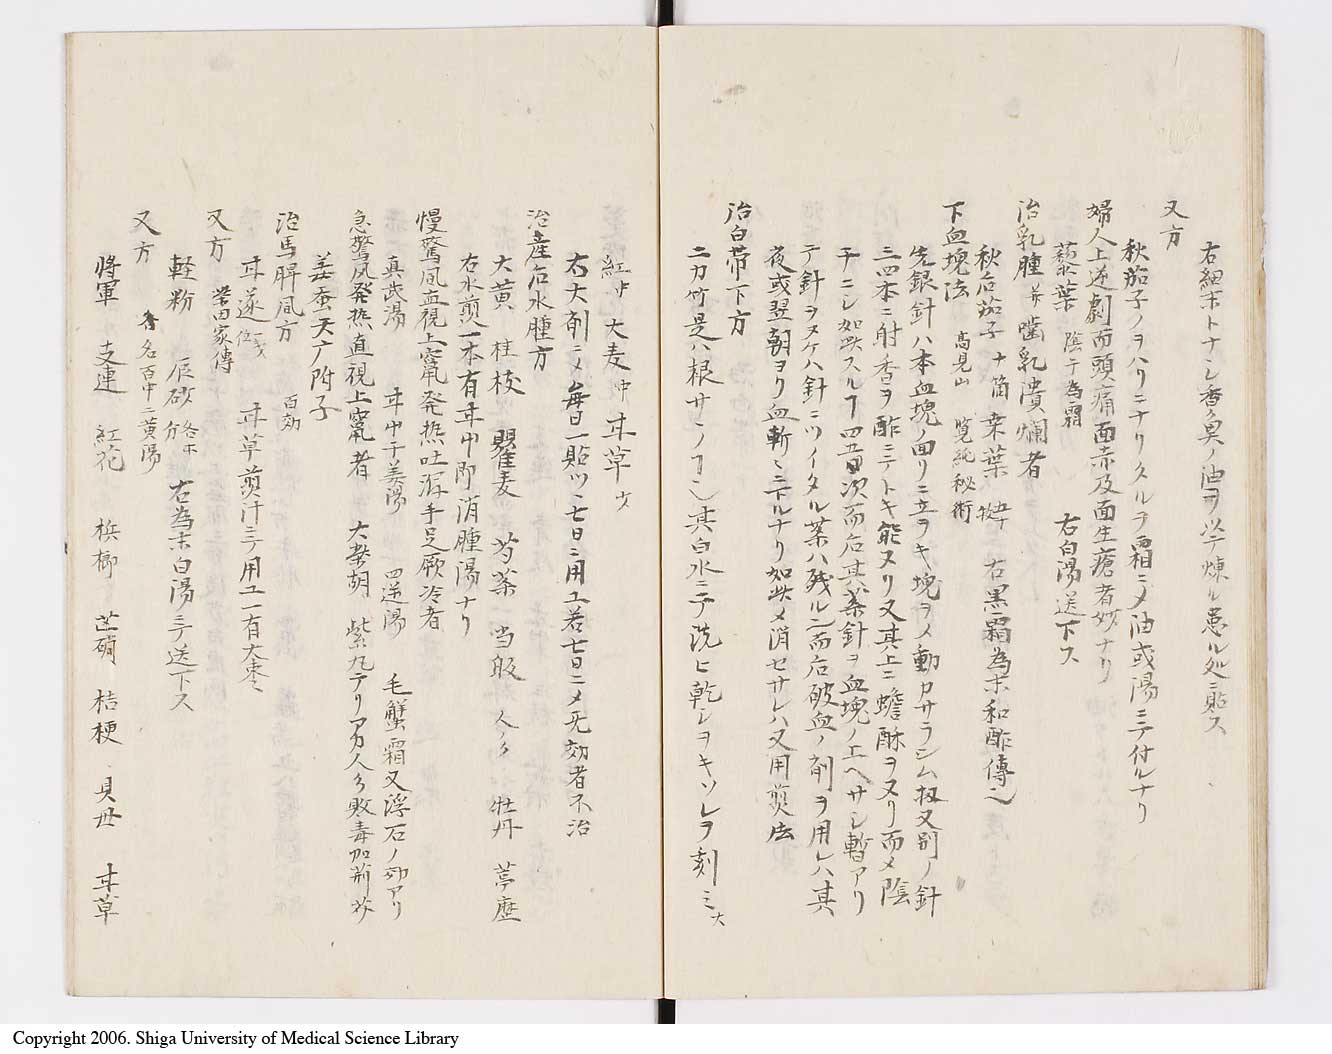 右細末トナシ香臭ノ油ヲ以テ煉ル患ル処ニ貼ス
又方
秋茄子ノヲハリニナリタルヲ霜ニメ油或湯ニテ付ルナリ
婦人上逆劇而頭痛面赤及面生瘡者妙ナリ
藜葉 陰干為霜 右白湯送下ス
治乳腫并嚙乳潰爛者
秋后茄子 十箇 桒葉 五十枚 右黒霜為末和酢傳之
下血塊法 高見山 覚純秘術
先銀針八本血塊ノ回リニ立ヲキ塊ヲメ動カサラシム扨又別ノ針
三四本ニ射香ヲ酢ニテトキ能ヌリ又其上ニ蟾酥ヲヌリ而メ陰
干ニシ如此スルヿ四五次而后其薬針ヲ血塊ノ上ヘサシ暫アリ
テ針ヲヌケハ針ニツイタル薬ハ残ル而后破血ノ剤ヲ用レハ其
夜或翌朝ヨリ血斬ミニ下ルナリ如此メ消セサレハ又用煎法
治白帯下方
二刀竹是ハ根サノヿ其白水ニテ洗ヒ乾シヲキソレヲ刻ミ大
紅中 大麦中 甘草少
右大剤ニメ毎日一貼ツヽ七日ニ用ユ若七日ニメ无効者不治
治産后水腫方
大黄 桂枝 瞿麦 芍薬 当皈 人参 牡丹 葶歴
右水煎一本有甘中即消腫湯ナリ
慢驚風血視上竄発热吐泻手足厥冷者
真武湯 甘中干姜湯 四逆湯 毛蟹霜又浮石ノ効アリ
急驚风発热直視上竄者 大柴胡 紫丸テリアカ人参敗毒加荊芥
姜蚕天广附子
治馬脾風方 百効
甘遂 甘草煎汁ニテ用ユ一有大枣
又方 営田家傳
軽粉 辰砂 各等分 右為末白湯ニテ送下ス
又方 名百中二黄湯
将軍 支連 紅花 梹榔 芒硝 桔梗 貝母 甘草
Copyright 2006. Shiga University of Medical Science Library